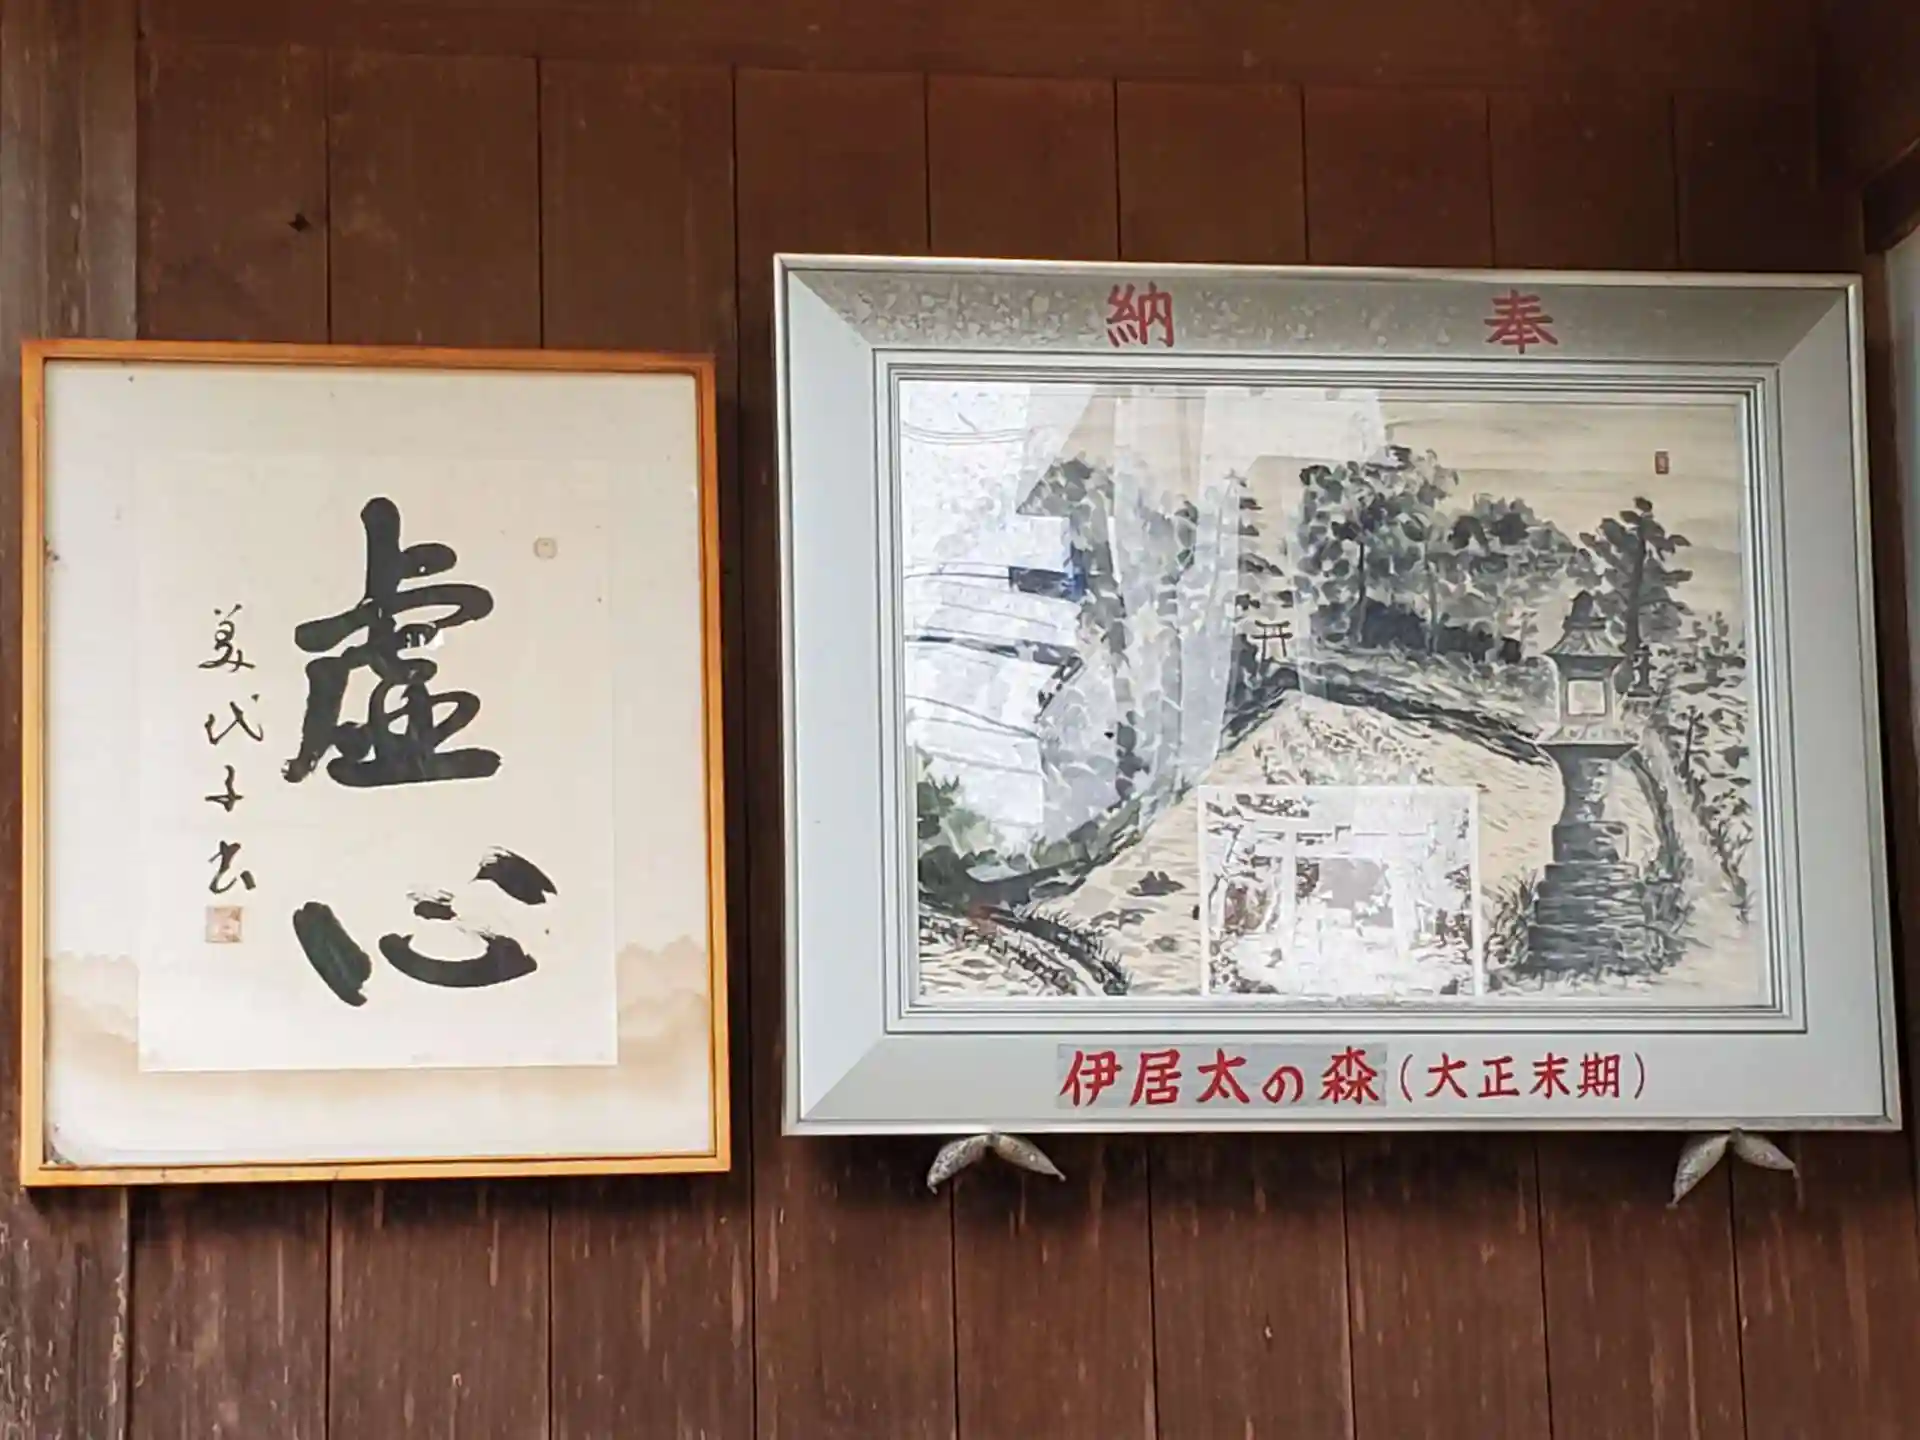 虚心
美代子書
奉納
伊居太の森(大正末期)